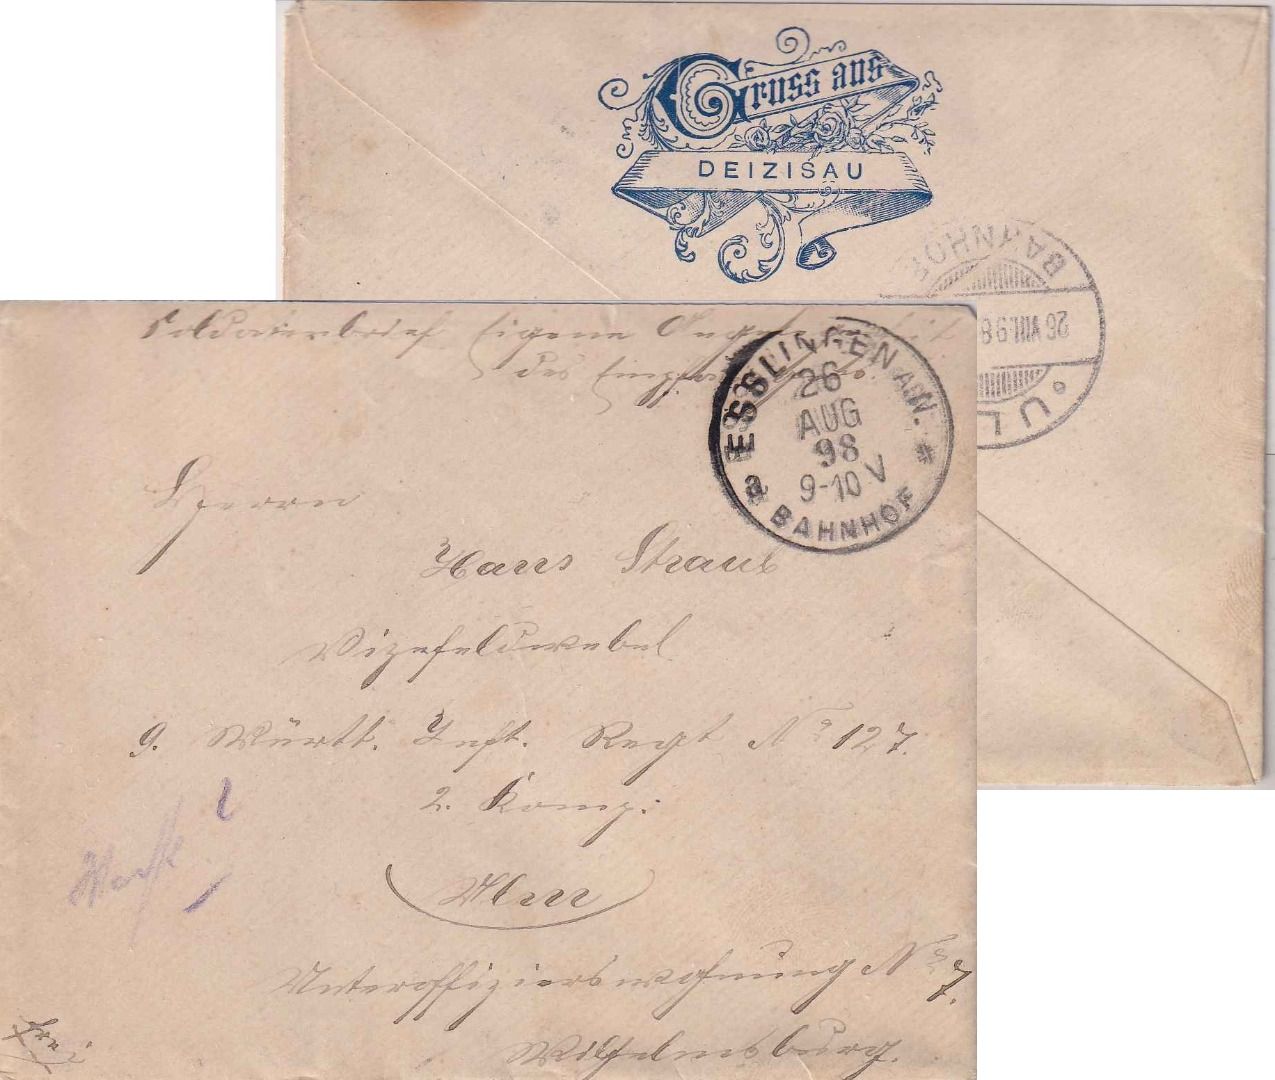 Gruss aus
DEIZISAU
BAHNHOF
26 VIII 98
ULM
Soldatenbrief Eigene Angelegenheit
des Empfängers.
ESSLINGEN A/N.
26
AUG
98
9-10 V
a BAHNHOF *
Herrn
Hans Straub
Vizefeldwebel
9. Württ. Inft. Regt No 127.
2. Komp.
Ulm
Unteroffizierswohnung No 7.
Wilhelmsburg.
frei